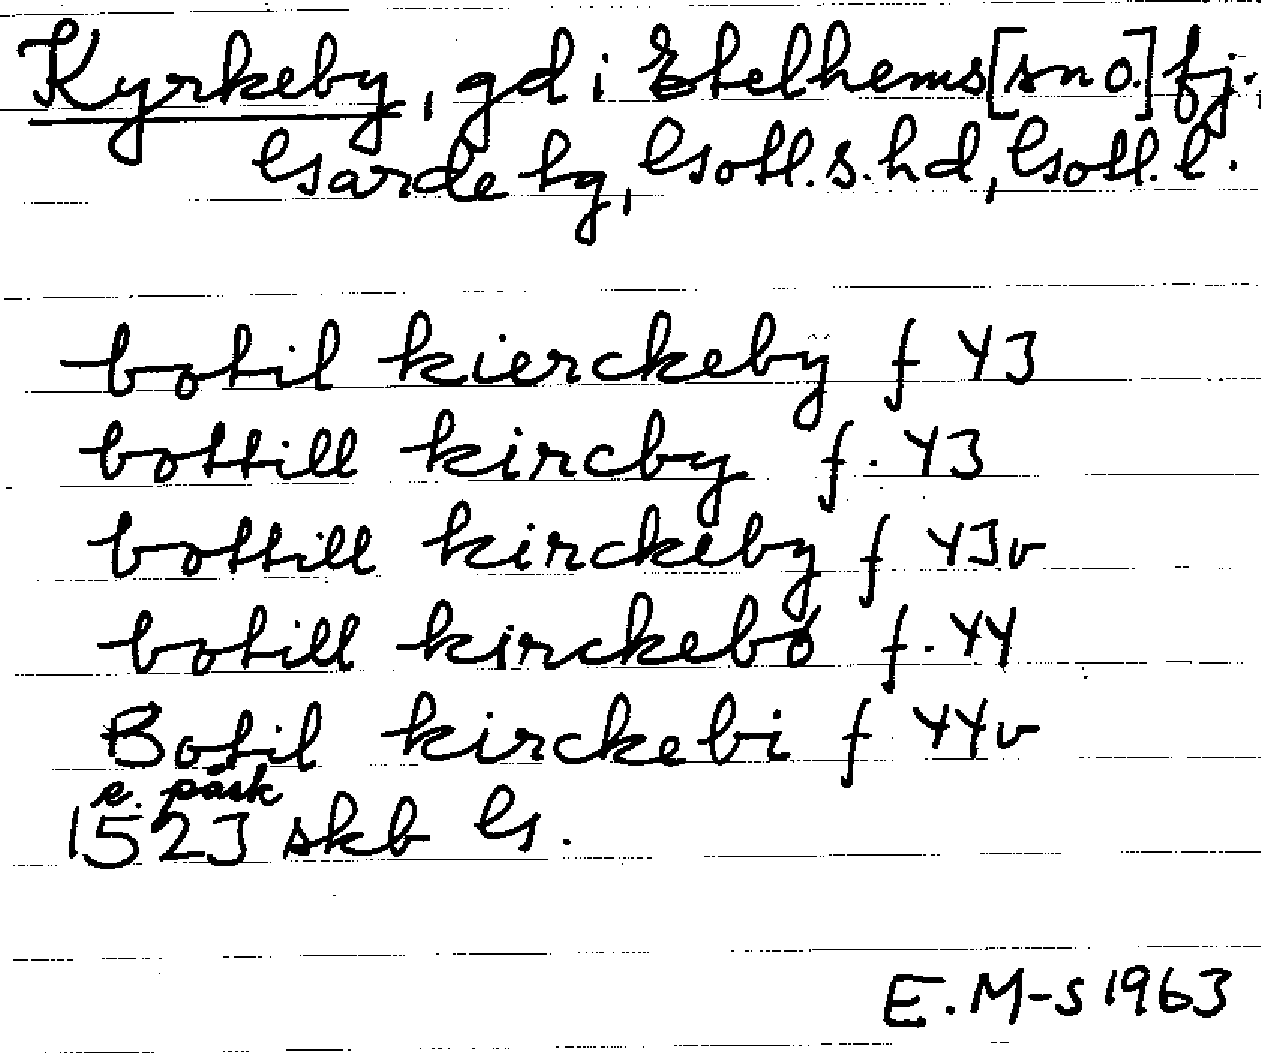 Kyrkeby, gd i Etelhems [sn o.] fj.
Garde tg, Gotl. s. hd, Gotl. l.
botil kierckeby f 43
bottill kircby f. 43
bottill kirckeby f 43v
botill kirckebö f. 44
Botil kirckebi f 44v
e. påsk
1523 skb G.
E. M-s 1963